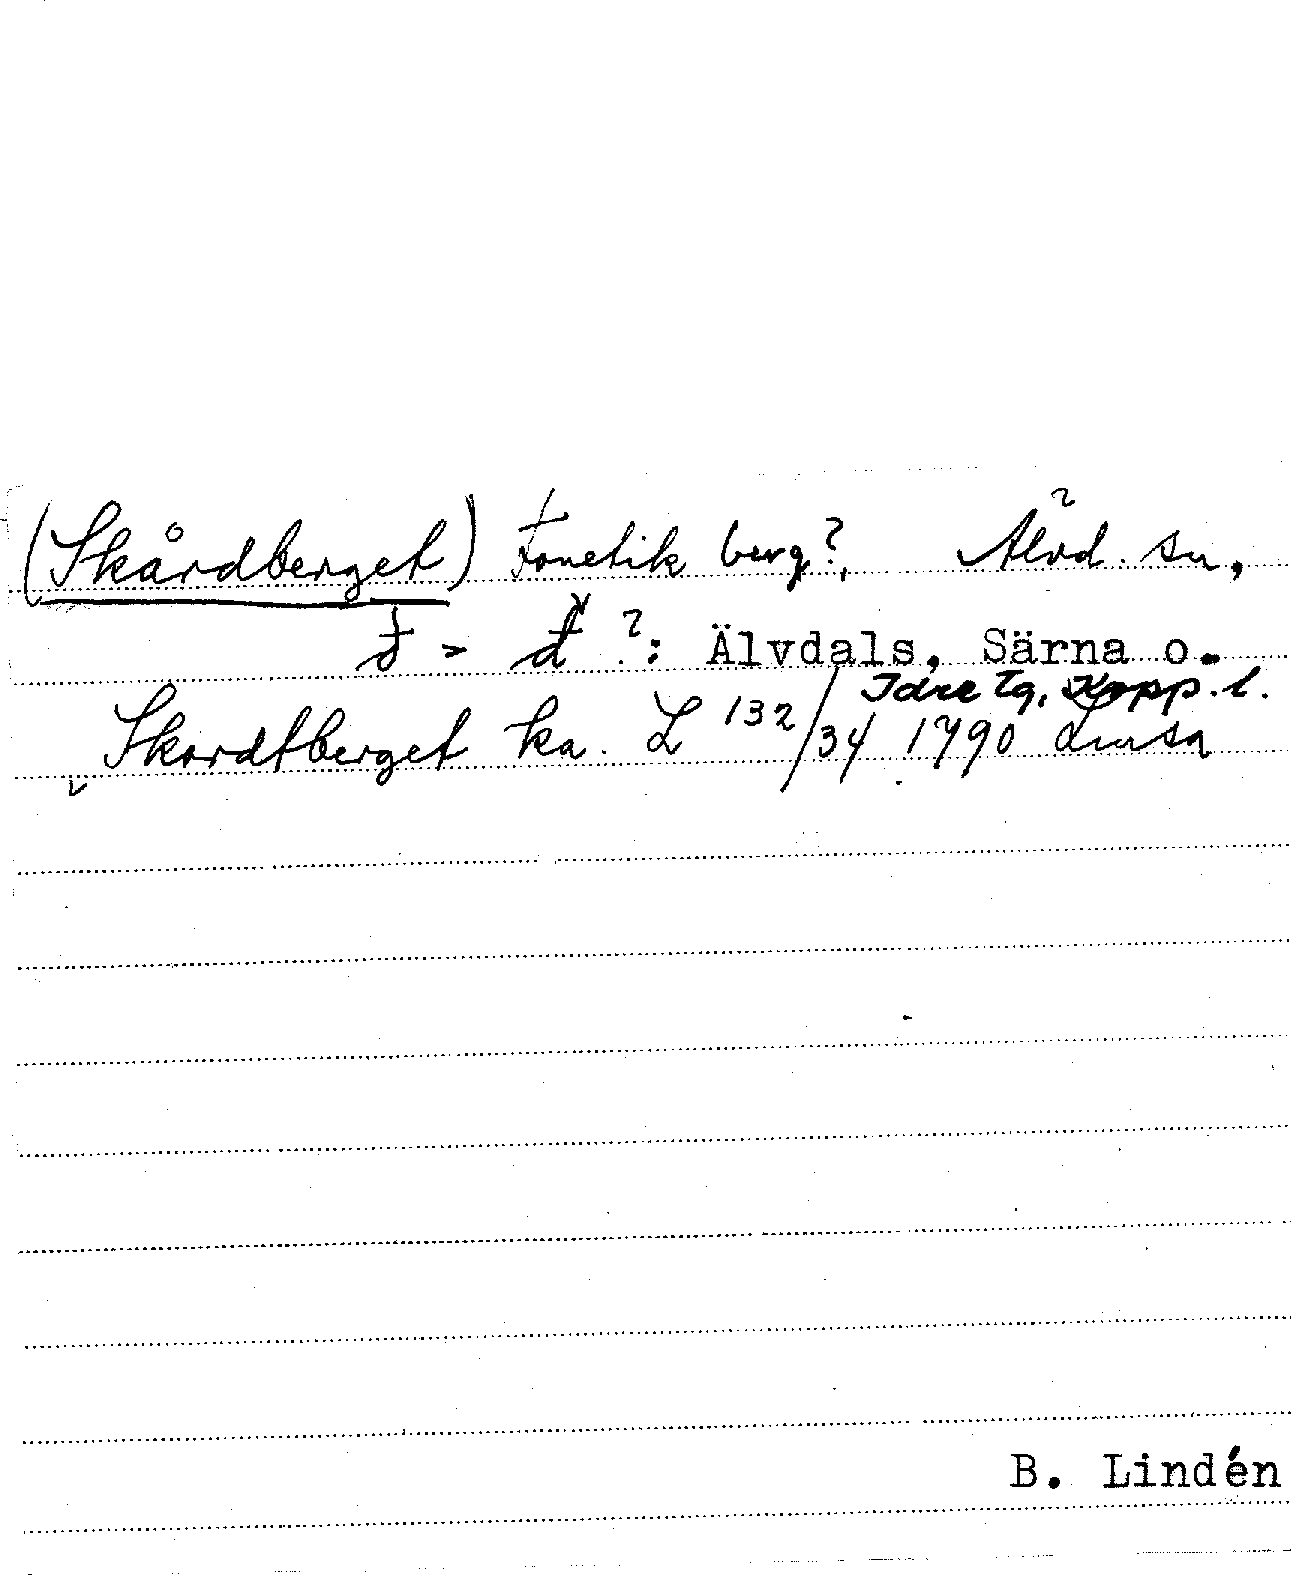 (Skårdberget) Fonetik berg?, Älvd. sn,
đ > đ ?: Älvdals, Särna o.
Idre tg, Kopp. l.
Skordtberget ka. L 132/34 1790 Lmsa
B. Lindén